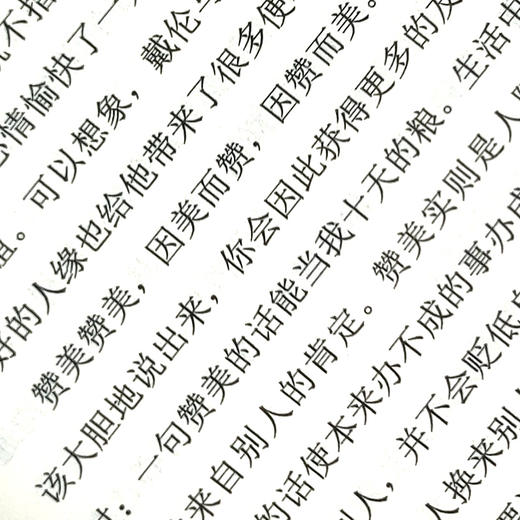 心情愉快了一
姐。可以想象，戴伦
好的人缘也给他带来了很多便
赞美赞美，因美而赞，因赞而美。
该大胆地说出来，你会因此获得更多的
：一句赞美的话能当我十天的粮。生活中
来自别人的肯定。赞美实则是人
的话使本来办不成的事办成
人，并不会贬低
人换来别